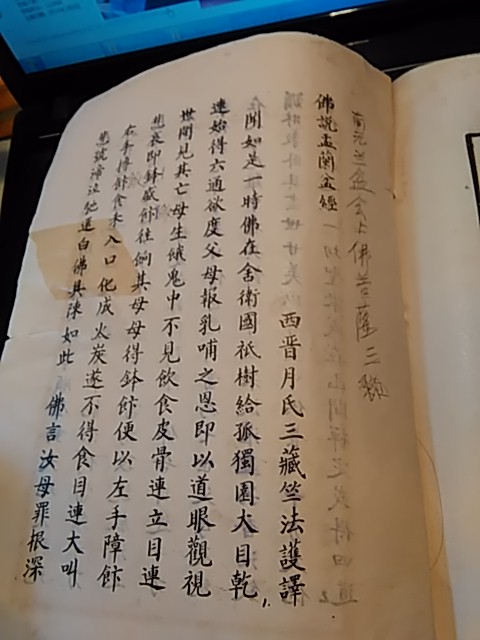 南无兰盆会上佛菩薩三
佛說盂蘭盆經
西晋月氏三藏竺法護譯
聞如是一時佛在舍衛國祇樹給孤獨園大目乾
連始得六通欲度父母報乳哺之恩即以道眼觀視
世間見其亡母生餓鬼中不見飲食皮骨連立目連
悲哀即鉢盛飰往餉其母母得鉢飰便以左手障飰
右手摶飰食未入口化成火炭遂不得食目連大叫
悲號涕泣馳還白佛具陳如此 佛言汝母罪根深